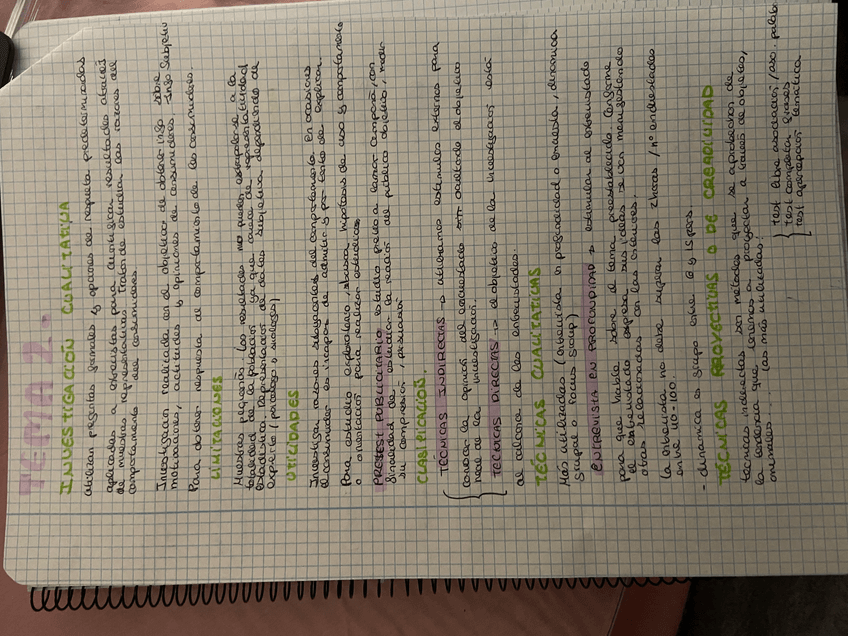 TEMA 2.
INVESTIGACIÓN CUALITATIVA
utilizan preguntas grandes y opciones de respuesta predeterminadas
aplicadas a entrevistas para investigar resultados a través
de muestras representativas. Tratar de estudiar las razones del
comportamiento del consumidor.
Investigación realizada en el objetivo de obtener info sobre
motivaciones, actitudes y opiniones de consumidores → info Subjetiva
Para obtener respuesta al comportamiento de los consumidores.
LIMITACIONES
Muestras pequeñas, los resultados no pueden extrapolarse a la
totalidad de la población ya que carece de representatividad
estadística. Interpretación de datos subjetiva, dependiendo de
experto (psicólogo, sociólogo)
UTILIDADES
Investigar razones del comportamiento. En ocasiones
el consumidor es incapaz de admitir y por tanto de explicar.
Para estudio exploratorio, buscar hipótesis de uso y comportamiento
o orientación para realizar estudios
PRETEST PUBLICITARIO estudio previo a lanzar campaña, con
finalidad de estudiar la reacción del público objetivo, medir
su comprensión, persuasión
CLASIFICACIÓN.
TÉCNICAS INDIRECTAS → utilizamos estímulos externos para
conocer la opinión del entrevistado ocultando el objetivo
real de la investigación.
TÉCNICAS DIRECTAS → el objetivo de la investigación está
al alcance de los entrevistados.
TÉCNICAS CUALITATIVAS
Más utilizadas (entrevista en profundidad o encuesta, dinámica
grupal o Focus Group)
ENTREVISTA EN PROFUNDIDAD → estimular al entrevistado
para que hable sobre el tema preestablecido. Conforme
el entrevistado expresa sus ideas se van
otras relacionadas con las anteriores.
La entrevista no debe superar las 2 horas / nº entrevistados
entre 40-100.
- dinámica es grupo entre 6 y 15 pers
TÉCNICAS PROYECTIVAS O DE CREATIVIDAD
técnicas indirectas son métodos que se aprovechan de
la tendencia que tenemos a proyectar a través de objetos,
animales ..... (las más utilizadas:
test libre asociación / aso. palabra
test completar frases
test apercepción temática